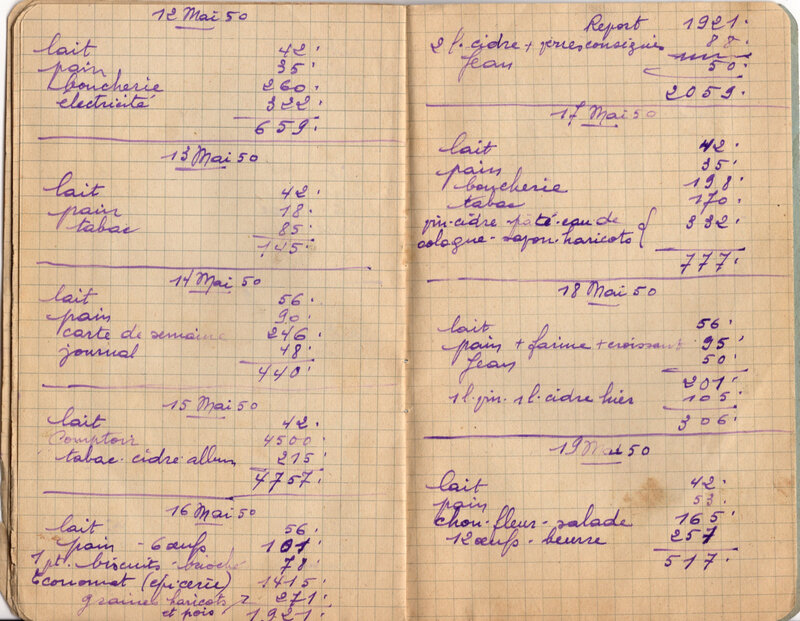 12 Mai 50
lait 42.
pain 35.
boucherie 260.
electricité 322.
659.
13 Mai 50
lait 42.
pain 18.
tabac 85.
145.
14 Mai 50
lait 56.
pain 90.
carte de semaine 246.
journal 48.
440.
15 Mai 50
lait 42.
Comptoir 4500.
tabac. cidre. album 215.
4757.
16 Mai 50
lait 56.
pain - 6 œufs 101.
1 pt. biscuits - brioche 78.
Economat (epicerie) 1415.
graines haricots 271.
et pois 1921.
Report 1921.
2 l. cidre + consignés 88.
Jean 50.
2059.
17 Mai 50
lait 42.
pain 35.
boucherie 198.
tabac 170.
cidre. pâté. eau de 332.
cologne - savon. haricots
777.
18 Mai 50
lait 56.
pain + farine + croissant 95.
Jean 50.
201.
1 l. vin. 1 l. cidre hier 105.
306.
19 Mai 50
lait 42.
pain 53.
chou-fleur - salade 165.
12 œufs - beurre 257
517.